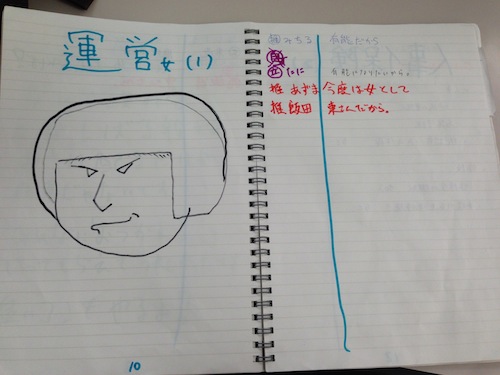 運営女(1)
10
みちる 有能だから
に 有能になりたいから。
推 あずま 今度は女として
推 飯田 東さんだから。